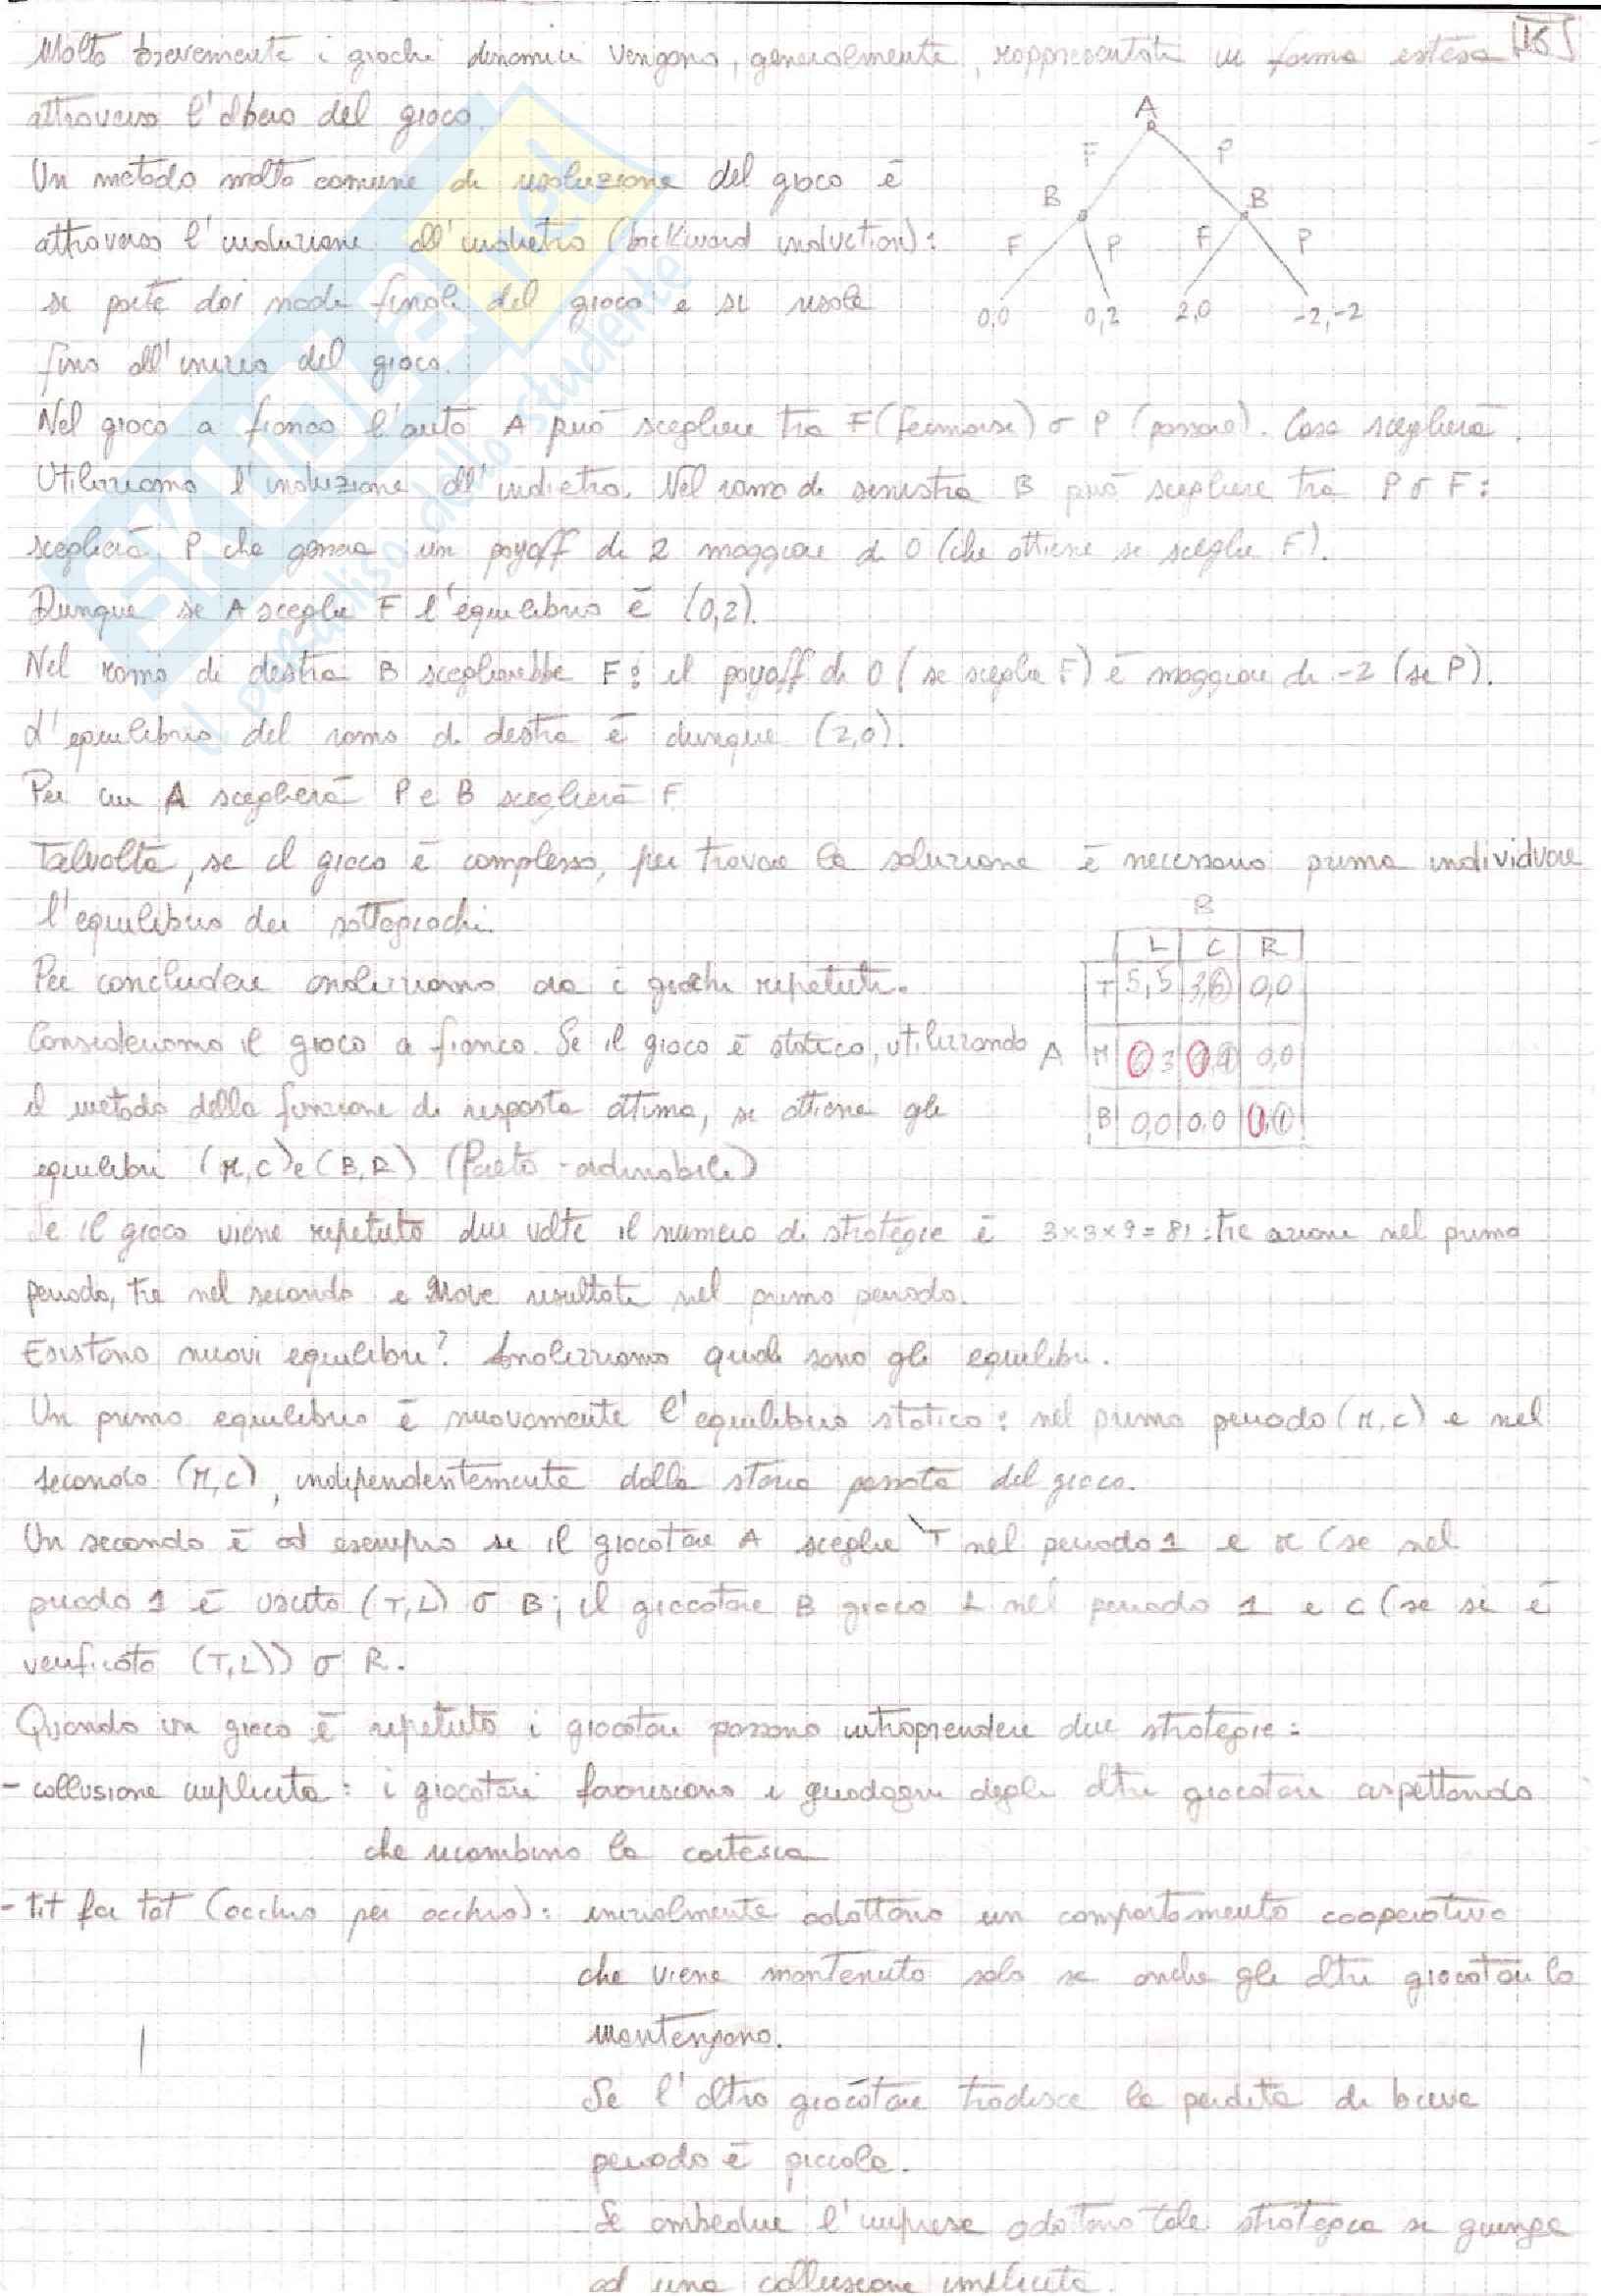 Molto brevemente i giochi dinamici vengono, generalmente, rappresentati in forma estesa
15
attraverso l'albero del gioco.
Un metodo molto comune di risoluzione del gioco è
attraverso l'induzione all'indietro (backward induction):
si parte dai nodi finali del gioco e si risale
fino all'inizio del gioco.
A
F P
B B
F P F P
0,0 0,2 2,0 -2,-2
Nel gioco a fianco l'auto A può scegliere tra F (fermarsi) o P (passare). Cosa sceglierà.
Utilizziamo l'induzione all'indietro. Nel ramo di sinistra B può scegliere tra P o F:
sceglierà P che genera un payoff di 2 maggiore di 0 (che ottiene se sceglie F).
Dunque se A sceglie F l'equilibrio è (0,2).
Nel ramo di destra B sceglierebbe F: il payoff di 0 (se sceglie F) è maggiore di -2 (se P).
L'equilibrio del ramo di destra è dunque (2,0).
Per cui A sceglierà P e B sceglierà F
Talvolta, se il gioco è complesso, per trovare la soluzione è necessario prima individuare
l'equilibrio dei sottogiochi.
Per concludere analizziamo ora i giochi ripetuti.
Consideriamo il gioco a fianco. Se il gioco è statico, utilizzando
il metodo della funzione di risposta ottima, si ottiene gli
equilibri (M,C) e (B,R) (Pareto-ordinabili)
B
L C R
T 5,5 3,6 0,0
A M 6,3 0,0
B 0,0 0,0 1,1
Se il gioco viene ripetuto due volte il numero di strategie è 3×3×9=81: tre azioni nel primo
periodo, tre nel secondo e nove risultati nel primo periodo.
Esistono nuovi equilibri? Analizziamo quali sono gli equilibri.
Un primo equilibrio è nuovamente l'equilibrio statico: nel primo periodo (M,C) e nel
secondo (M,C), indipendentemente dalla storia passata del gioco.
Un secondo è ad esempio se il giocatore A sceglie T nel periodo 1 e M (se nel
periodo 1 è uscito (T,L) o B; il giocatore B gioca L nel periodo 1 e C (se si è
verificato (T,L)) o R.
Quando un gioco è ripetuto i giocatori possono intraprendere due strategie:
- collusione implicita: i giocatori favoriscono i guadagni degli altri giocatori aspettando
che ricambino la cortesia
- tit for tat (occhio per occhio): inizialmente adottano un comportamento cooperativo
che viene mantenuto solo se anche gli altri giocatori lo
mantengono.
Se l'altro giocatore tradisce la perdita di breve
periodo è piccola.
Se ambedue l'imprese adottano tale strategia si giunge
ad una collusione implicita.
SKUOLA.net
il paradiso dello studente